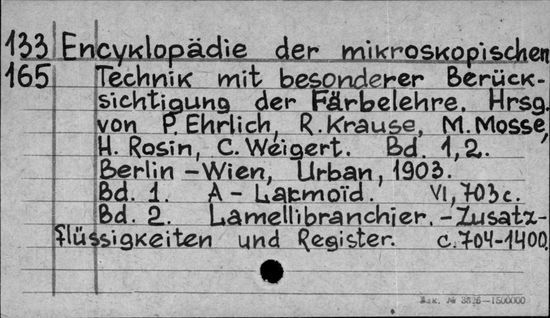 133 Encyklopädie der mikroskopischen
165 Technik mit besonderer Berück-
sichtigung der Färbelehre. Hrsg.
von P. Ehrlich, R. Krause, M. Mosse,
H. Rosin, C. Weigert. Bd. 1, 2.
Berlin - Wien, Urban, 1903.
Bd. 1. A - Lakmoïd. VI, 703 c.
Bd. 2. Lamellibranchier. - Zusatz-
flüssigkeiten und Register. c. 704-1400.
Зак. № 3826—1500000